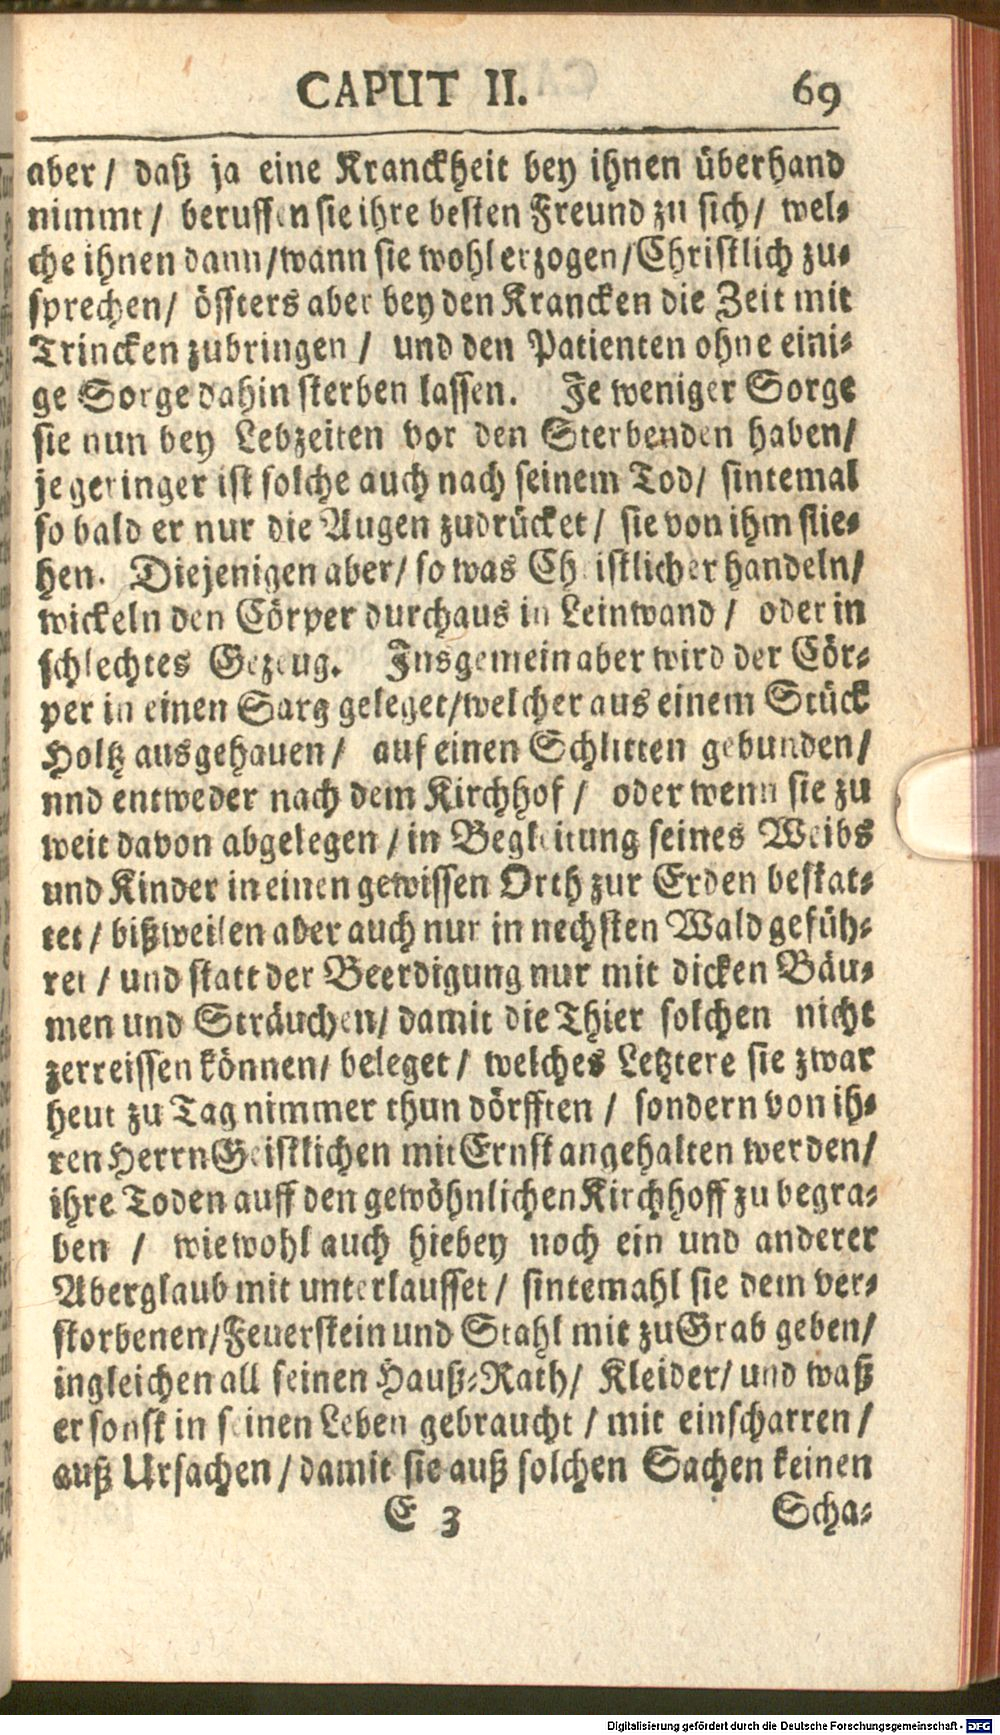 CAPUT II. 69
aber / daß ja eine Kranckheit bey ihnen überhand
nimmt / beruffen sie ihre besten Freund zu sich / wel-
che ihnen dann / wann sie wohl erzogen / Christlich zu-
sprechen / öffters aber bey den Krancken die Zeit mit
Trincken zubringen / und den Patienten ohne eini-
ge Sorge dahin sterben lassen. Je weniger Sorge
sie nun bey Lebzeiten vor den Sterbenden haben /
je geringer ist solche auch nach seinem Tod / sintemal
so bald er nur die Augen zudrücket / sie von ihm flie-
hen. Diejenigen aber / so was Christlicher handeln /
wickeln den Cörper durchaus in Leinwand / oder in
schlechtes Gezeug. Insgemein aber wird der Cör-
per in einen Sarg geleget / welcher aus einem Stück
Holtz ausgehauen / auf einen Schlitten gebunden /
nnd entweder nach dem Kirchhof / oder wenn sie zu
weit davon abgelegen / in Begleitung seines Weibs
und Kinder in einen gewissen Orth zur Erden bestat-
tet / bißweilen aber auch nur in nechsten Wald gefüh-
ret / und statt der Beerdigung nur mit dicken Bäu-
men und Sträuchen / damit die Thier solchen nicht
zerreissen können / beleget / welches Letztere sie zwar
heut zu Tag nimmer thun dörfften / sondern von ih-
ren Herrn Geistlichen mit Ernst angehalten werden /
ihre Toden auff den gewöhnlichen Kirchhoff zu begra-
ben / wiewohl auch hiebey noch ein und anderer
Aberglaub mit unterlauffet / sintemahl sie dem ver-
storbenen / Feuerstein und Stahl mit zu Grab geben /
ingleichen all seinen Hauß-Rath / Kleider / und waß
er sonst in seinen Leben gebraucht / mit einscharren /
auß Ursachen / damit sie auß solchen Sachen keinen
E 3 Scha-
Digitalisierung gefördert durch die Deutsche Forschungsgemeinschaft - DFG